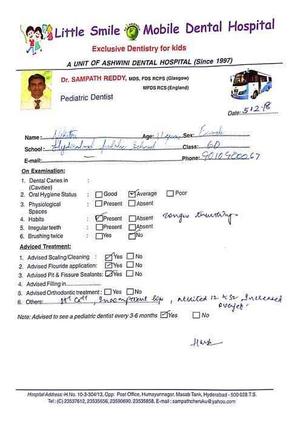 Little Smile Mobile Dental Hospital
Exclusive Dentistry for kids
A UNIT OF ASHWINI DENTAL HOSPITAL (Since 1997)
Dr. SAMPATH REDDY, MDS, FDS RCPS (Glasgow)
MFDS RCS-(England)
Pediatric Dentist
Date: 5-12-18
Name: Age: 11 years Sex: Female
School: Hyderabad public School Class: 6D
E-mail: Phone:
On Examination:
1. Dental Caries in :
(Cavities)
2. Oral Hygiene Status : Good Average Poor
3. Physiological : Present Absent
Spaces
4. Habits : Present Absent tongue thrusting
5. Irregular teeth : Present Absent
6. Brushing twice : Yes No
Adviced Treatment:
1. Advised Scaling/Cleaning : Yes No
2. Advised Flouride application: Yes No
3. Advised Pit & Fissure Sealants: Yes No
4. Advised Filling in
5. Advised Orthodontic treatment : Yes No
6. Others: Incompetent lips, Increased
overjet
Note: Advised to see a pediatric dentist every 3-6 months Yes No
Hospital Address: H.No. 10-3-304/13, Opp. Post Office, Humayunnagar, Masab Tank, Hyderabad - 500 028 T.S.
Tel: (C) 23537612, 23535656, 23590690, 23535858. E-mail : sampathcheruku@yahoo.com